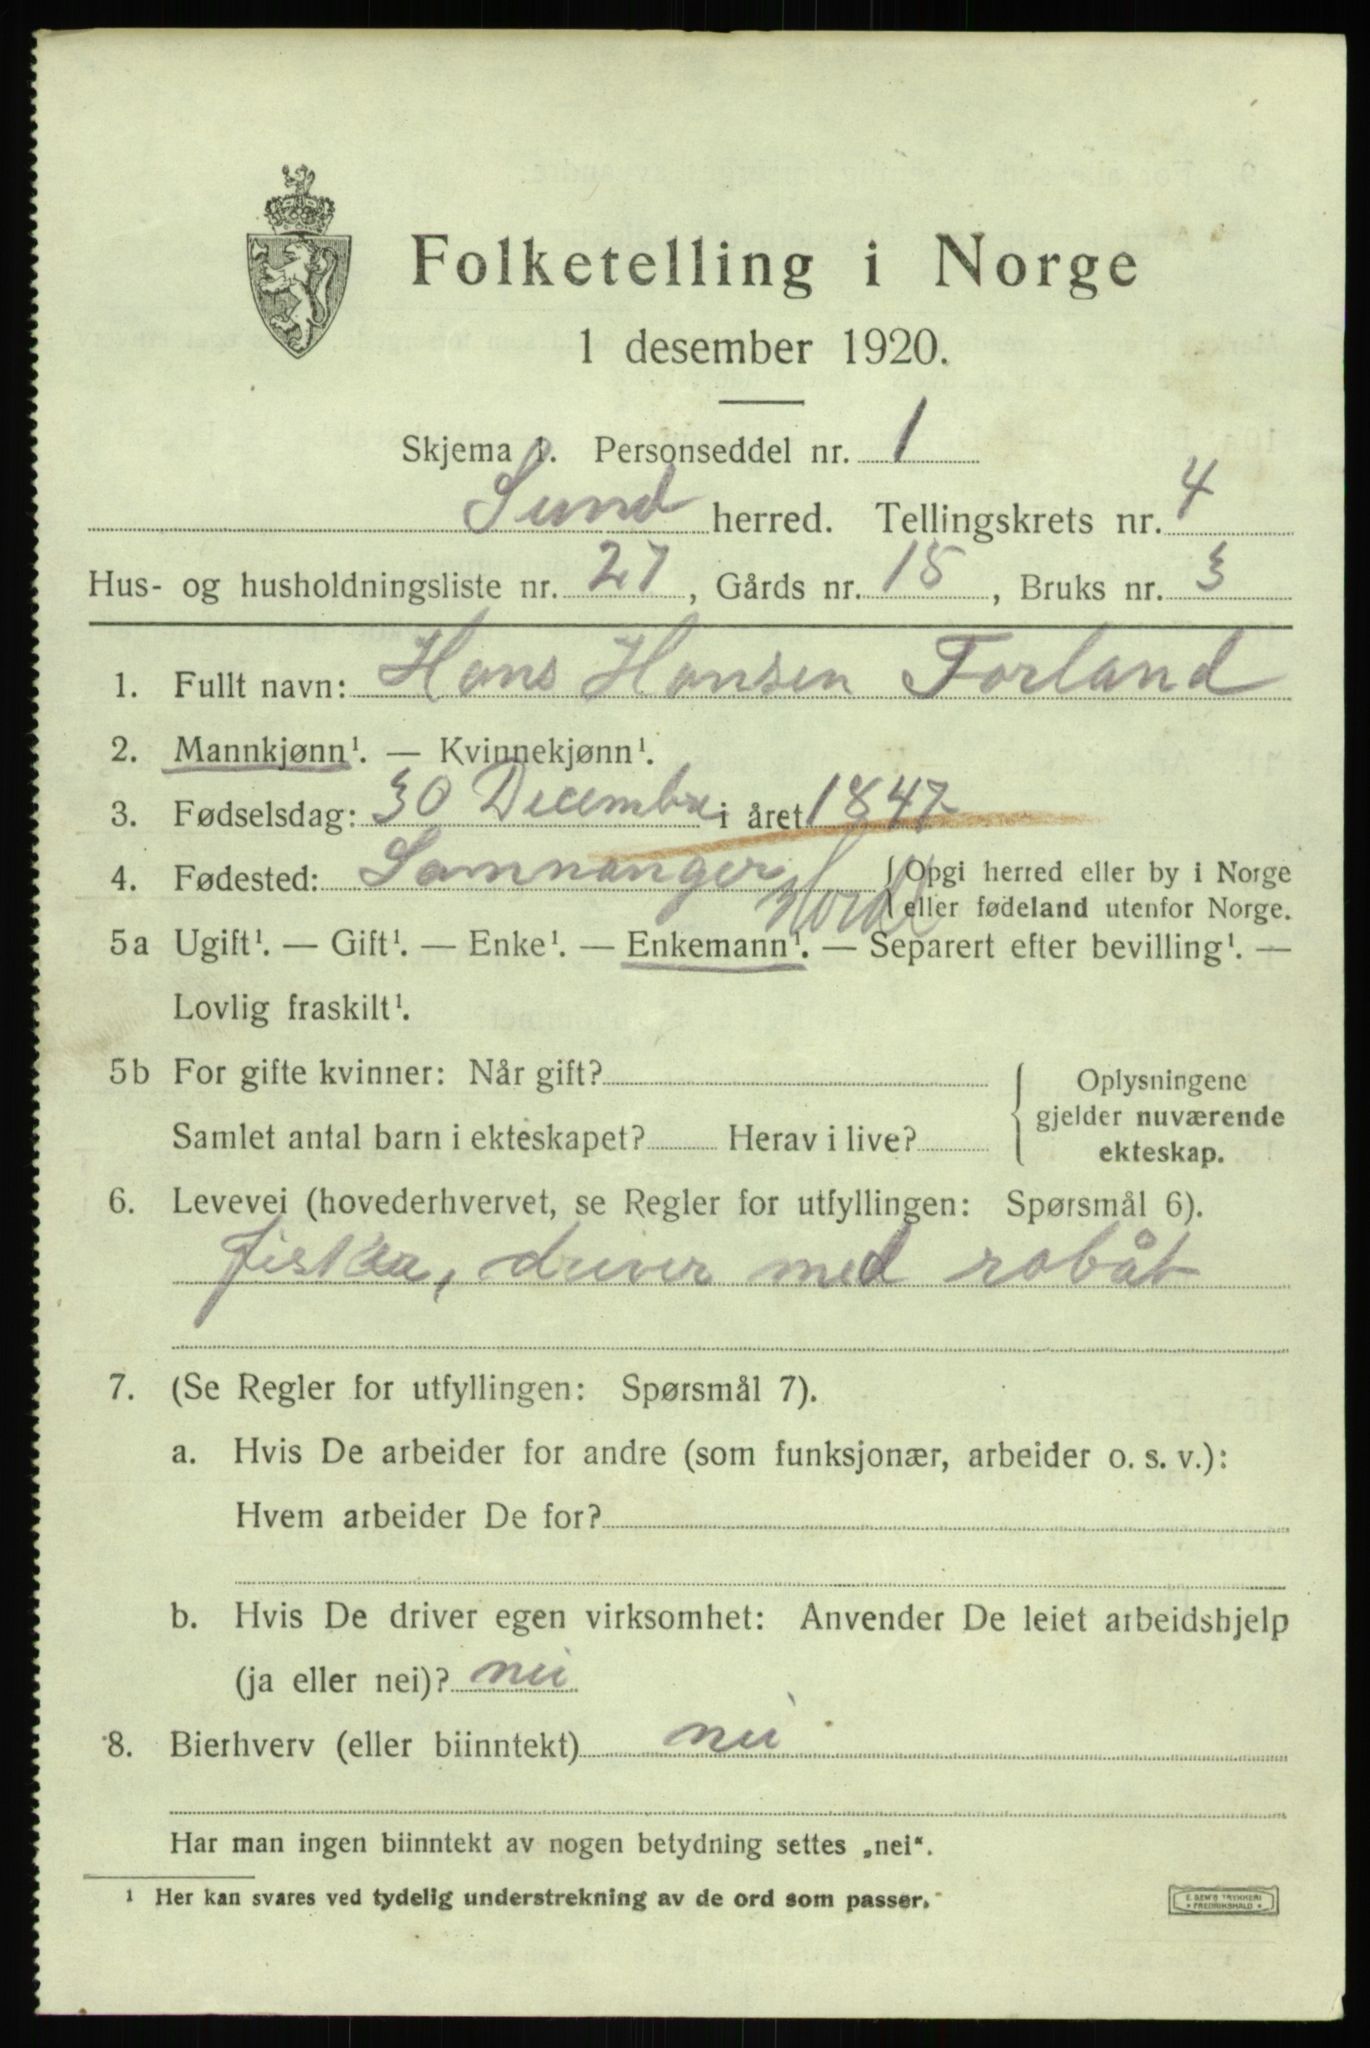 Folketelling i Norge
1 desember 1920.
Skjema 1. Personseddel nr. 1
Sund herred. Tellingskrets nr. 4
Hus- og husholdningsliste nr. 27, Gårds nr. 15, Bruks nr. 3
1. Fullt navn: Hans Hansen Forland
2. Mannkjønn¹. — Kvinnekjønn¹.
3. Fødselsdag: 30 Decembre i året 1847
4. Fødested: Samnanger Hordl { Opgi herred eller by i Norge
eller fødeland utenfor Norge.
5a Ugift¹. — Gift¹. — Enke¹. — Enkemann¹. — Separert efter bevilling¹. —
Lovlig fraskilt¹.
5b For gifte kvinner: Når gift?
Samlet antal barn i ekteskapet? Herav i live?
Oplysningene
gjelder nuværende
ekteskap.
6. Levevei (hovederhvervet, se Regler for utfyllingen: Spørsmål 6).
fisker, driver med robåt
7. (Se Regler for utfyllingen: Spørsmål 7).
a. Hvis De arbeider for andre (som funksjonær, arbeider o. s. v.):
Hvem arbeider De for?
b. Hvis De driver egen virksomhet: Anvender De leiet arbeidshjelp
(ja eller nei)? nei
8. Bierhverv (eller biinntekt) nei
Har man ingen biinntekt av nogen betydning settes „nei“.
¹ Her kan svares ved tydelig understrekning av de ord som passer.
E. SEM'S TRYKKERI
FREDRIKSHALD